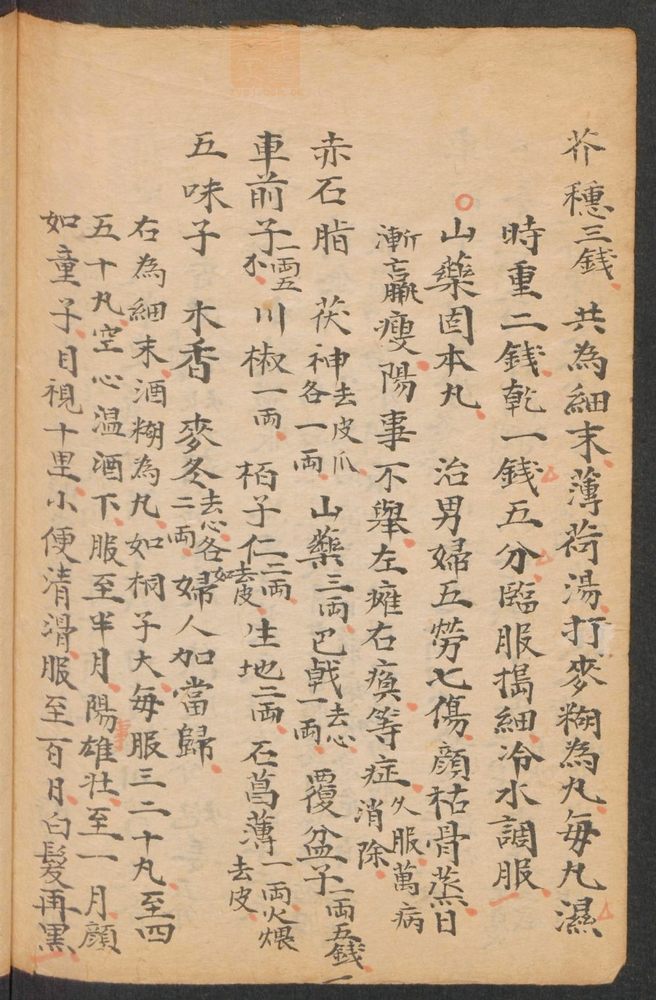 芥穗三錢 共為細末薄荷湯打麥糊為丸每丸濕
時重二錢乾一錢五分臨服搗細冷水調服
山藥固本丸 治男婦五勞七傷顏枯骨蒸日
漸羸瘦陽事不舉左癱右瘓等症久服萬病消除
赤石脂 茯神去皮爪各一両 山藥三両 巴戟去心一両 覆盆子一両五錢
車前子一両五 川椒一両 栢子仁二両去皮 生地二両 石菖薄一両火煨去皮
五味子 木香 麥冬去心各二両 如婦人加當歸
右為細末酒糊為丸如桐子大每服三二十丸至四
五十丸空心温酒下服至半月陽事雄壮至一月顏
如童子目視十里小便清滑服至一百日白髮再黑